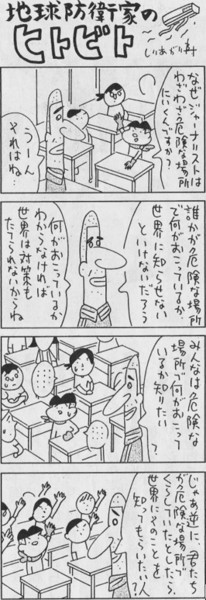 地球防衛家の
ヒトビト
しりあがり寿
なぜジャーナリストは
わざわざ危険な場所
にいくんですか?
うーん
それはね…
誰かが危険な場所
で何がおこっているか
世界に知らせない
といけないだろう
何がおこっているか
わからなければ
世界は対策も
たてられないからね
みんなは危険な
場所で何がおこって
いるか知りたい
?
じゃあ逆に、君たち
が危険な場所で
くらしていたら、
世界にそのことを
知ってもらいたい人
?